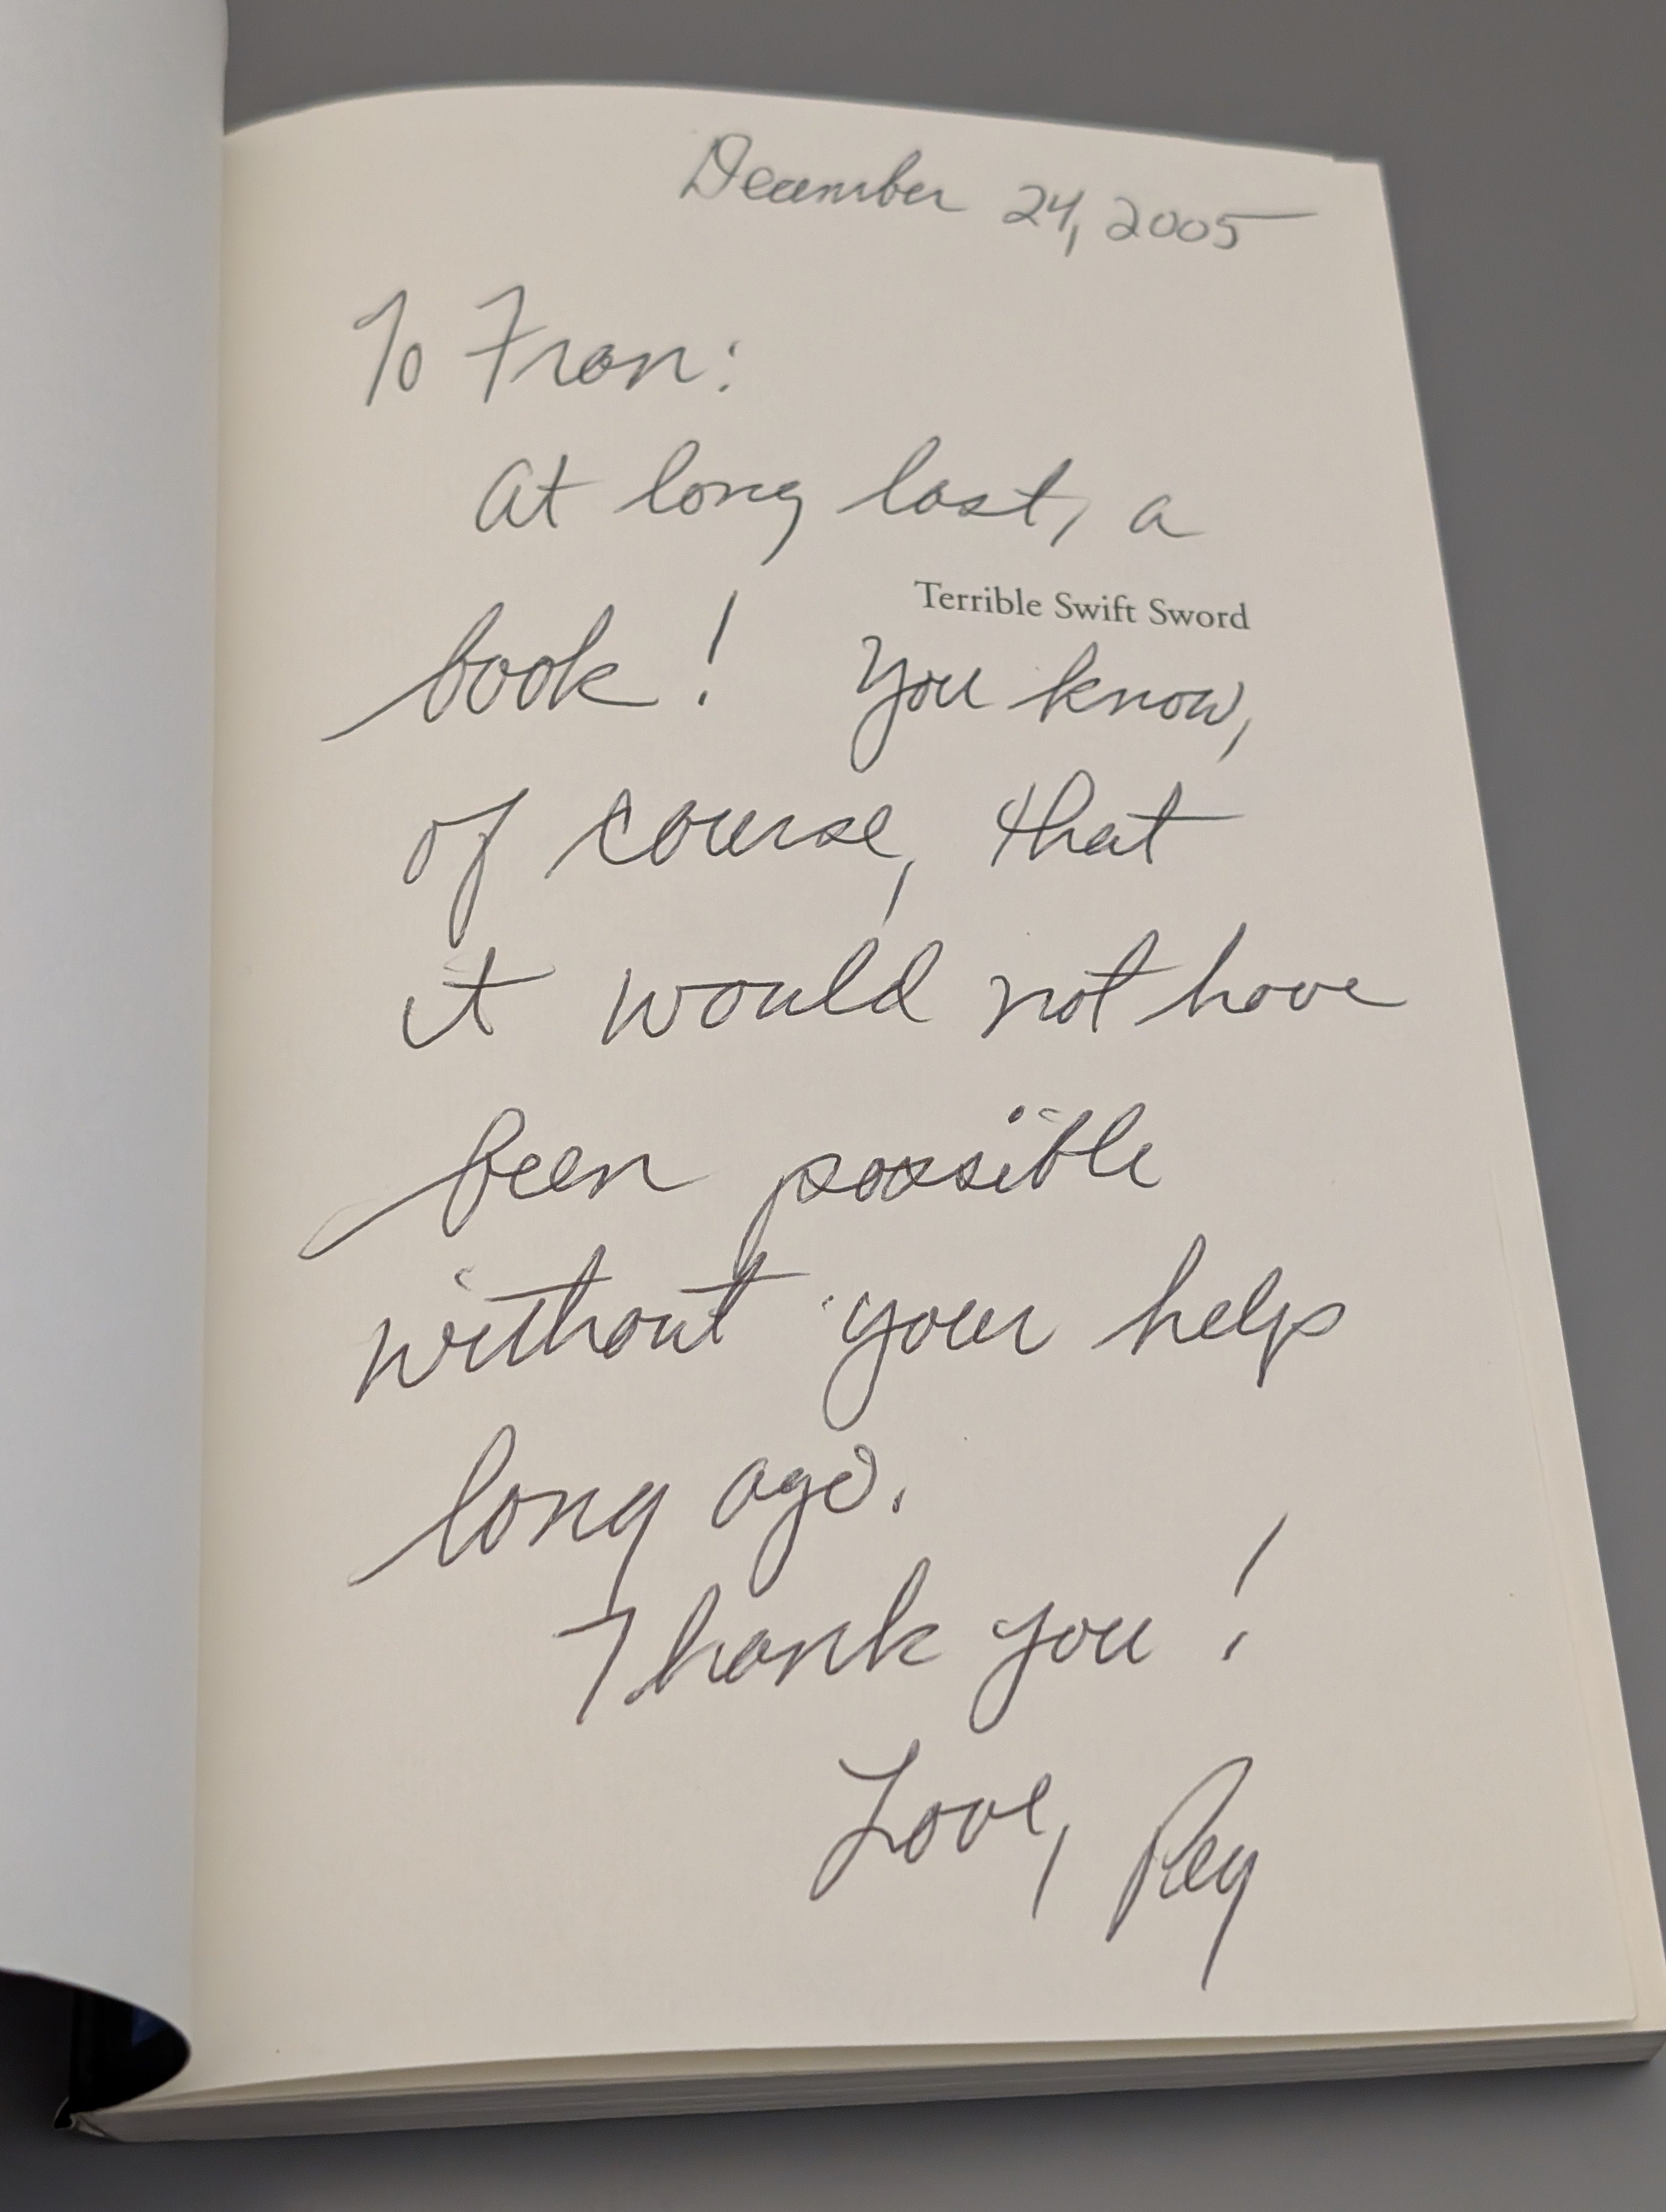 December 24, 2005
To Fran:
At long last, a
Terrible Swift Sword
book! You know,
of course, that
it would not have
been possible
without your help
long ago.
Thank you!
Love, Reg